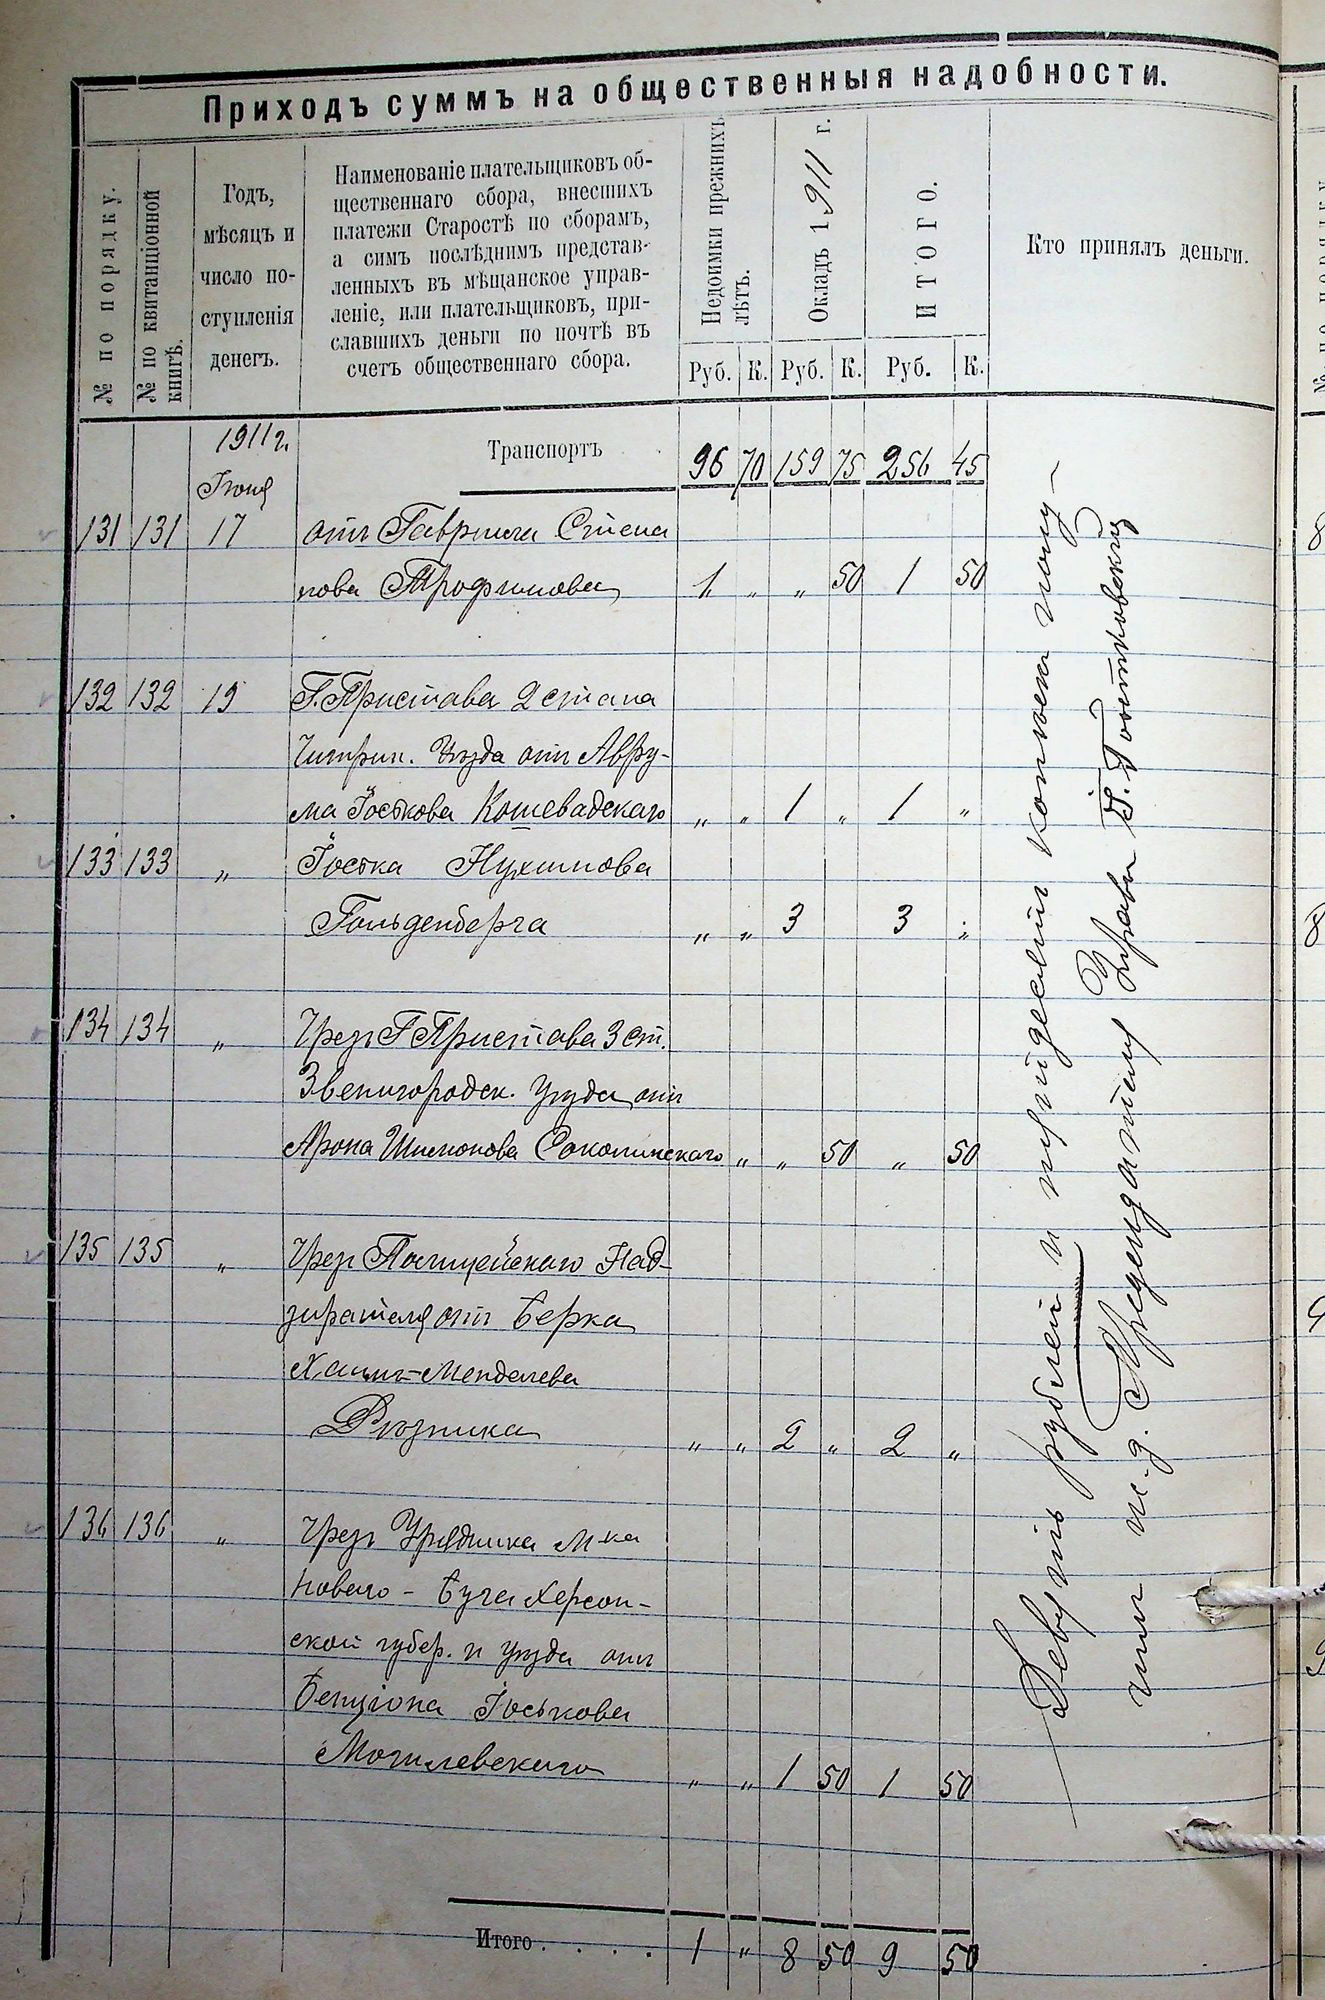 Приходъ суммъ на общественныя надобности.
№ по порядку.
№ по квитанціонной
книгѣ.
Годъ,
мѣсяцъ и
число по-
ступленія
денегъ.
Наименованіе плательщиковъ об-
щественнаго сбора, внесшихъ
платежи Старостѣ по сборамъ,
а симъ послѣднимъ представ-
ленныхъ въ мѣщанское управ-
леніе, или плательщиковъ, при-
славшихъ деньги по почтѣ въ
счетъ общественнаго сбора.
Недоимки прежнихъ
лѣтъ.
Окладъ 1911 г.
ИТОГО.
Кто принялъ деньги.
Руб. К. Руб. К. Руб. К.
1911 г. Транспортъ 96 70 159 75 256 45
Іюня
131 131 17 отъ Гавриила Степа
нова Трофимова 1 „ „ 50 1 50
132 132 19 Г. Пристава 2 стана
Чигрин. Уѣзда отъ Авру-
ма Іоськова Кошевадскаго „ „ 1 „ 1 „
133 133 „ Іоська Нухимова
Гольденберга „ „ 3 3 „
134 134 „ Чрезъ Г Пристава 3 ст.
Звенигородск. уѣзда отъ
Арона Шимонова Соколинскаго „ „ 50 „ 50
135 135 „ Чрез Полицейскаго Над-
зирателя отъ Берка
Хаимъ-Менделева
Рѣзника „ „ 2 „ 2 „
136 136 „ Чрезъ Урядника м-ка
Новаго - Буга Херсон-
ской губер. и уѣзда отъ
Бенціона Іоськова
Могилевскаго „ „ 1 50 1 50
Итого . . . . 1 „ 8 50 9 50
Девять рублей и пятьдесятъ копѣекъ полу-
чилъ и. д. Предсѣдателя Управы